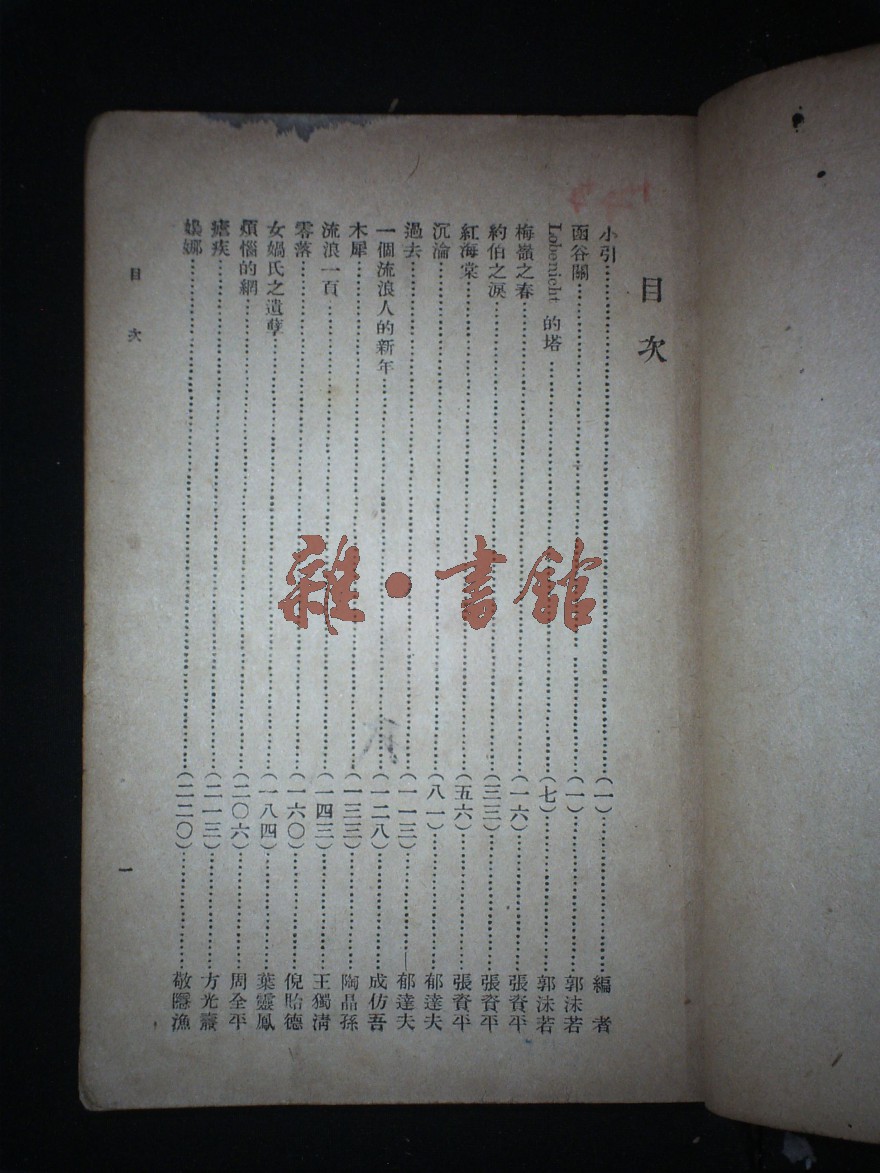 目次
小引……(一)……編者
函谷關……(一)……郭沫若
Löbenicht 的塔……(七)……郭沫若
梅嶺之春……(一六)……張資平
約伯之淚……(三三)……張資平
紅海棠……(五六)……張資平
沉淪……(八一)……郁達夫
過去……(一一三)……郁達夫
一個流浪人的新年……(一二八)……成仿吾
木犀……(一三三)……陶晶孫
流浪一頁……(一四三)……王獨淸
零落……(一六〇)……倪貽德
女媧氏之遺孽……(一八四)……葉靈鳳
煩惱的網……(二〇六)……周全平
瘧疾……(二一三)……方光燾
嬝娜……(二二〇)……敬隱漁
目次
一
雜·書館